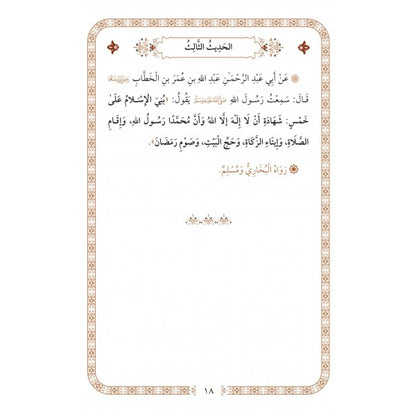 الحَدِيثُ الثَّالِثُ
عَنْ أَبِي عَبْدِ الرَّحْمَٰنِ عَبْدِ اللهِ بنِ عُمَرَ بنِ الْخَطَّابِ
قَالَ: سَمِعْتُ رَسُولَ اللهِ ﷺ يَقُولُ: «بُنِيَ الْإِسْلَامُ عَلَىٰ
خَمْسٍ: شَهَادَةِ أَنْ لَا إِلَٰهَ إِلَّا اللهُ وَأَنَّ مُحَمَّدًا رَسُولُ اللهِ، وَإِقَامِ
الصَّلَاةِ، وَإِيتَاءِ الزَّكَاةِ، وَحَجِّ الْبَيْتِ، وَصَوْمِ رَمَضَانَ».
رَوَاهُ الْبُخَارِيُّ وَمُسْلِمٌ.
١٨